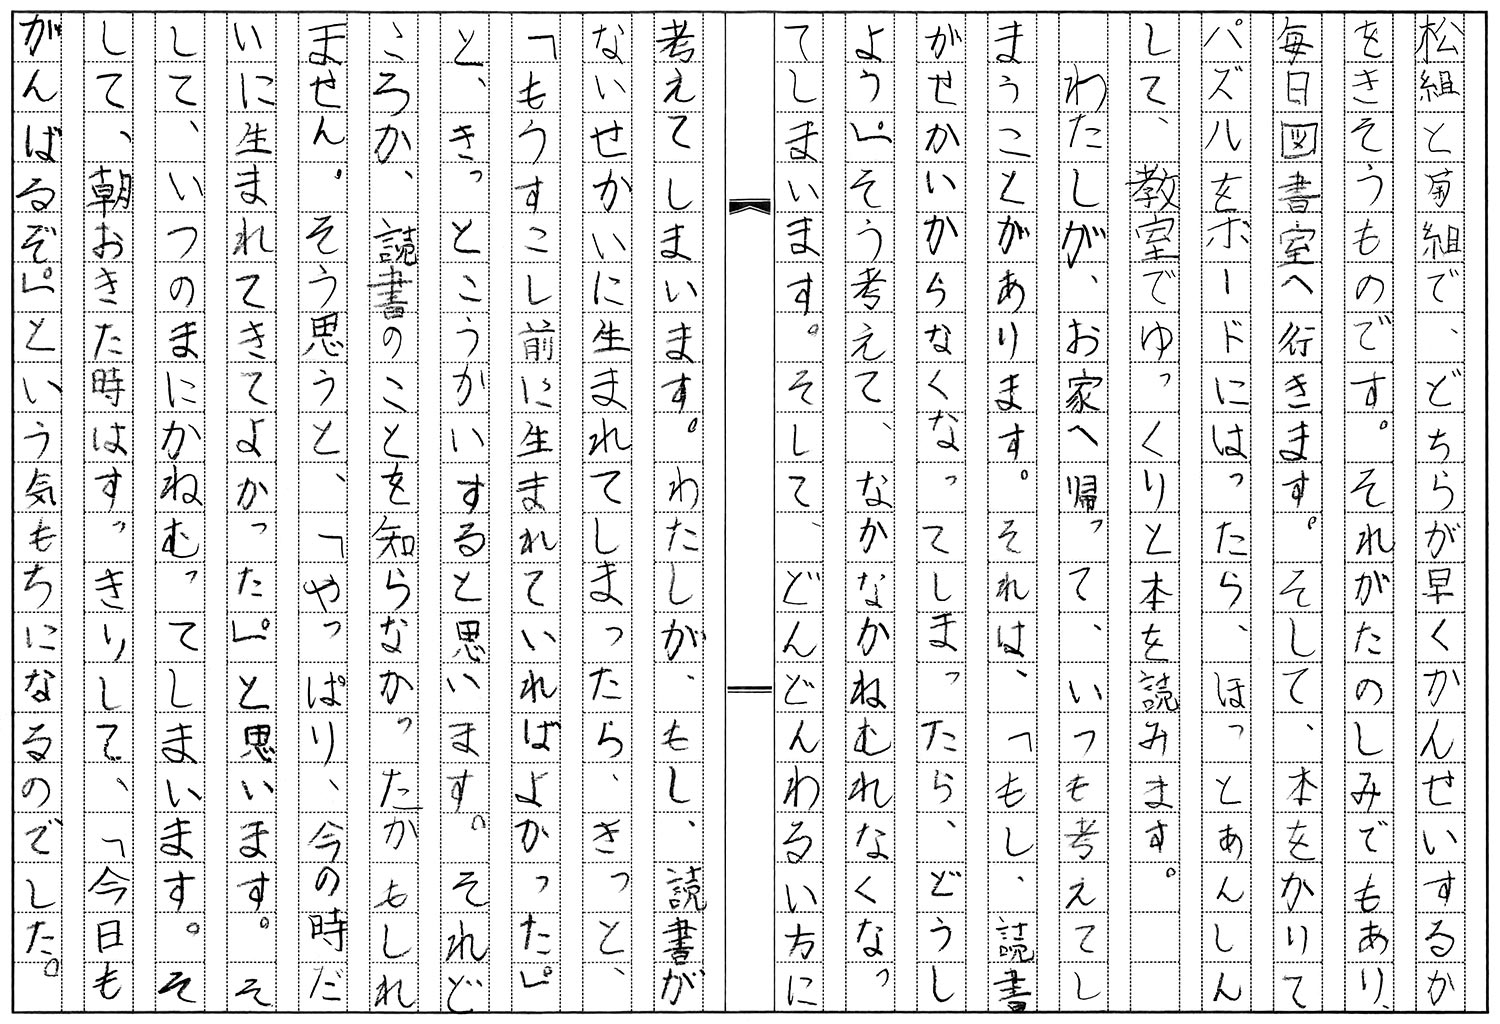 松組と菊組で、どちらが早くかんせいするか
をきそうものです。それがたのしみでもあり、
毎日図書室へ行きます。そして、本をかりて
パズルをボードにはったら、ほっとあんしん
して、教室でゆっくりと本を読みます。
わたしが、お家へ帰って、いつも考えてし
まうことがあります。それは、「もし、読書
がせかいからなくなってしまったら、どうし
よう」そう考えて、なかなかねむれなくなっ
てしまいます。そして、どんどんわるい方に
考えてしまいます。わたしが、もし、読書が
ないせかいに生まれてしまったら、きっと、
「もうすこし前に生まれていればよかった」
と、きっとこうかいすると思います。それど
ころか、読書のことを知らなかったかもしれ
ません。そう思うと、「やっぱり、今の時だ
いに生まれてきてよかった」と思います。そ
して、いつのまにかねむってしまいます。そ
して、朝おきた時はすっきりして、「今日も
がんばるぞ」という気もちになるのでした。